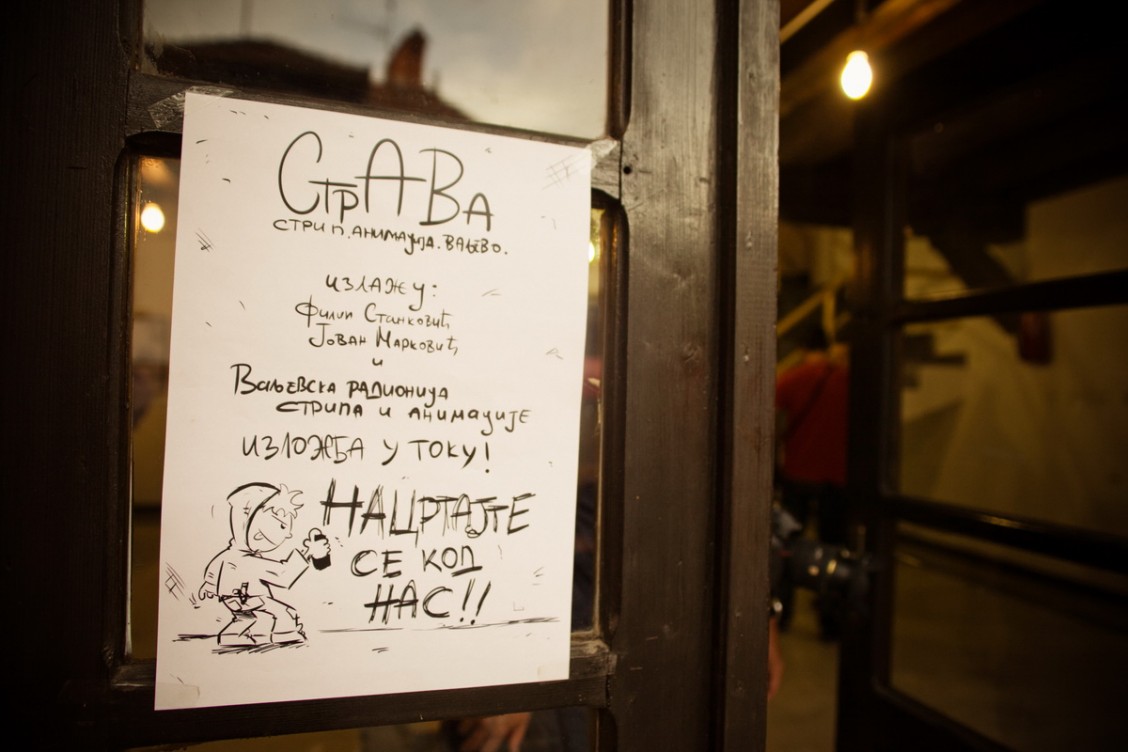 СтрАВА
СТРИП.АНИМАЦИЈА.ВАЉЕВО.
ИЗЛАЖУ:
Филип Станковић,
Јован Марковић,
и
ВАЉЕВСКА РАДИОНИЦА
СТРИПА И АНИМАЦИЈЕ
ИЗЛОЖБА У ТОКУ!
НАЦРТАЈТЕ
СЕ КОД
НАС!!